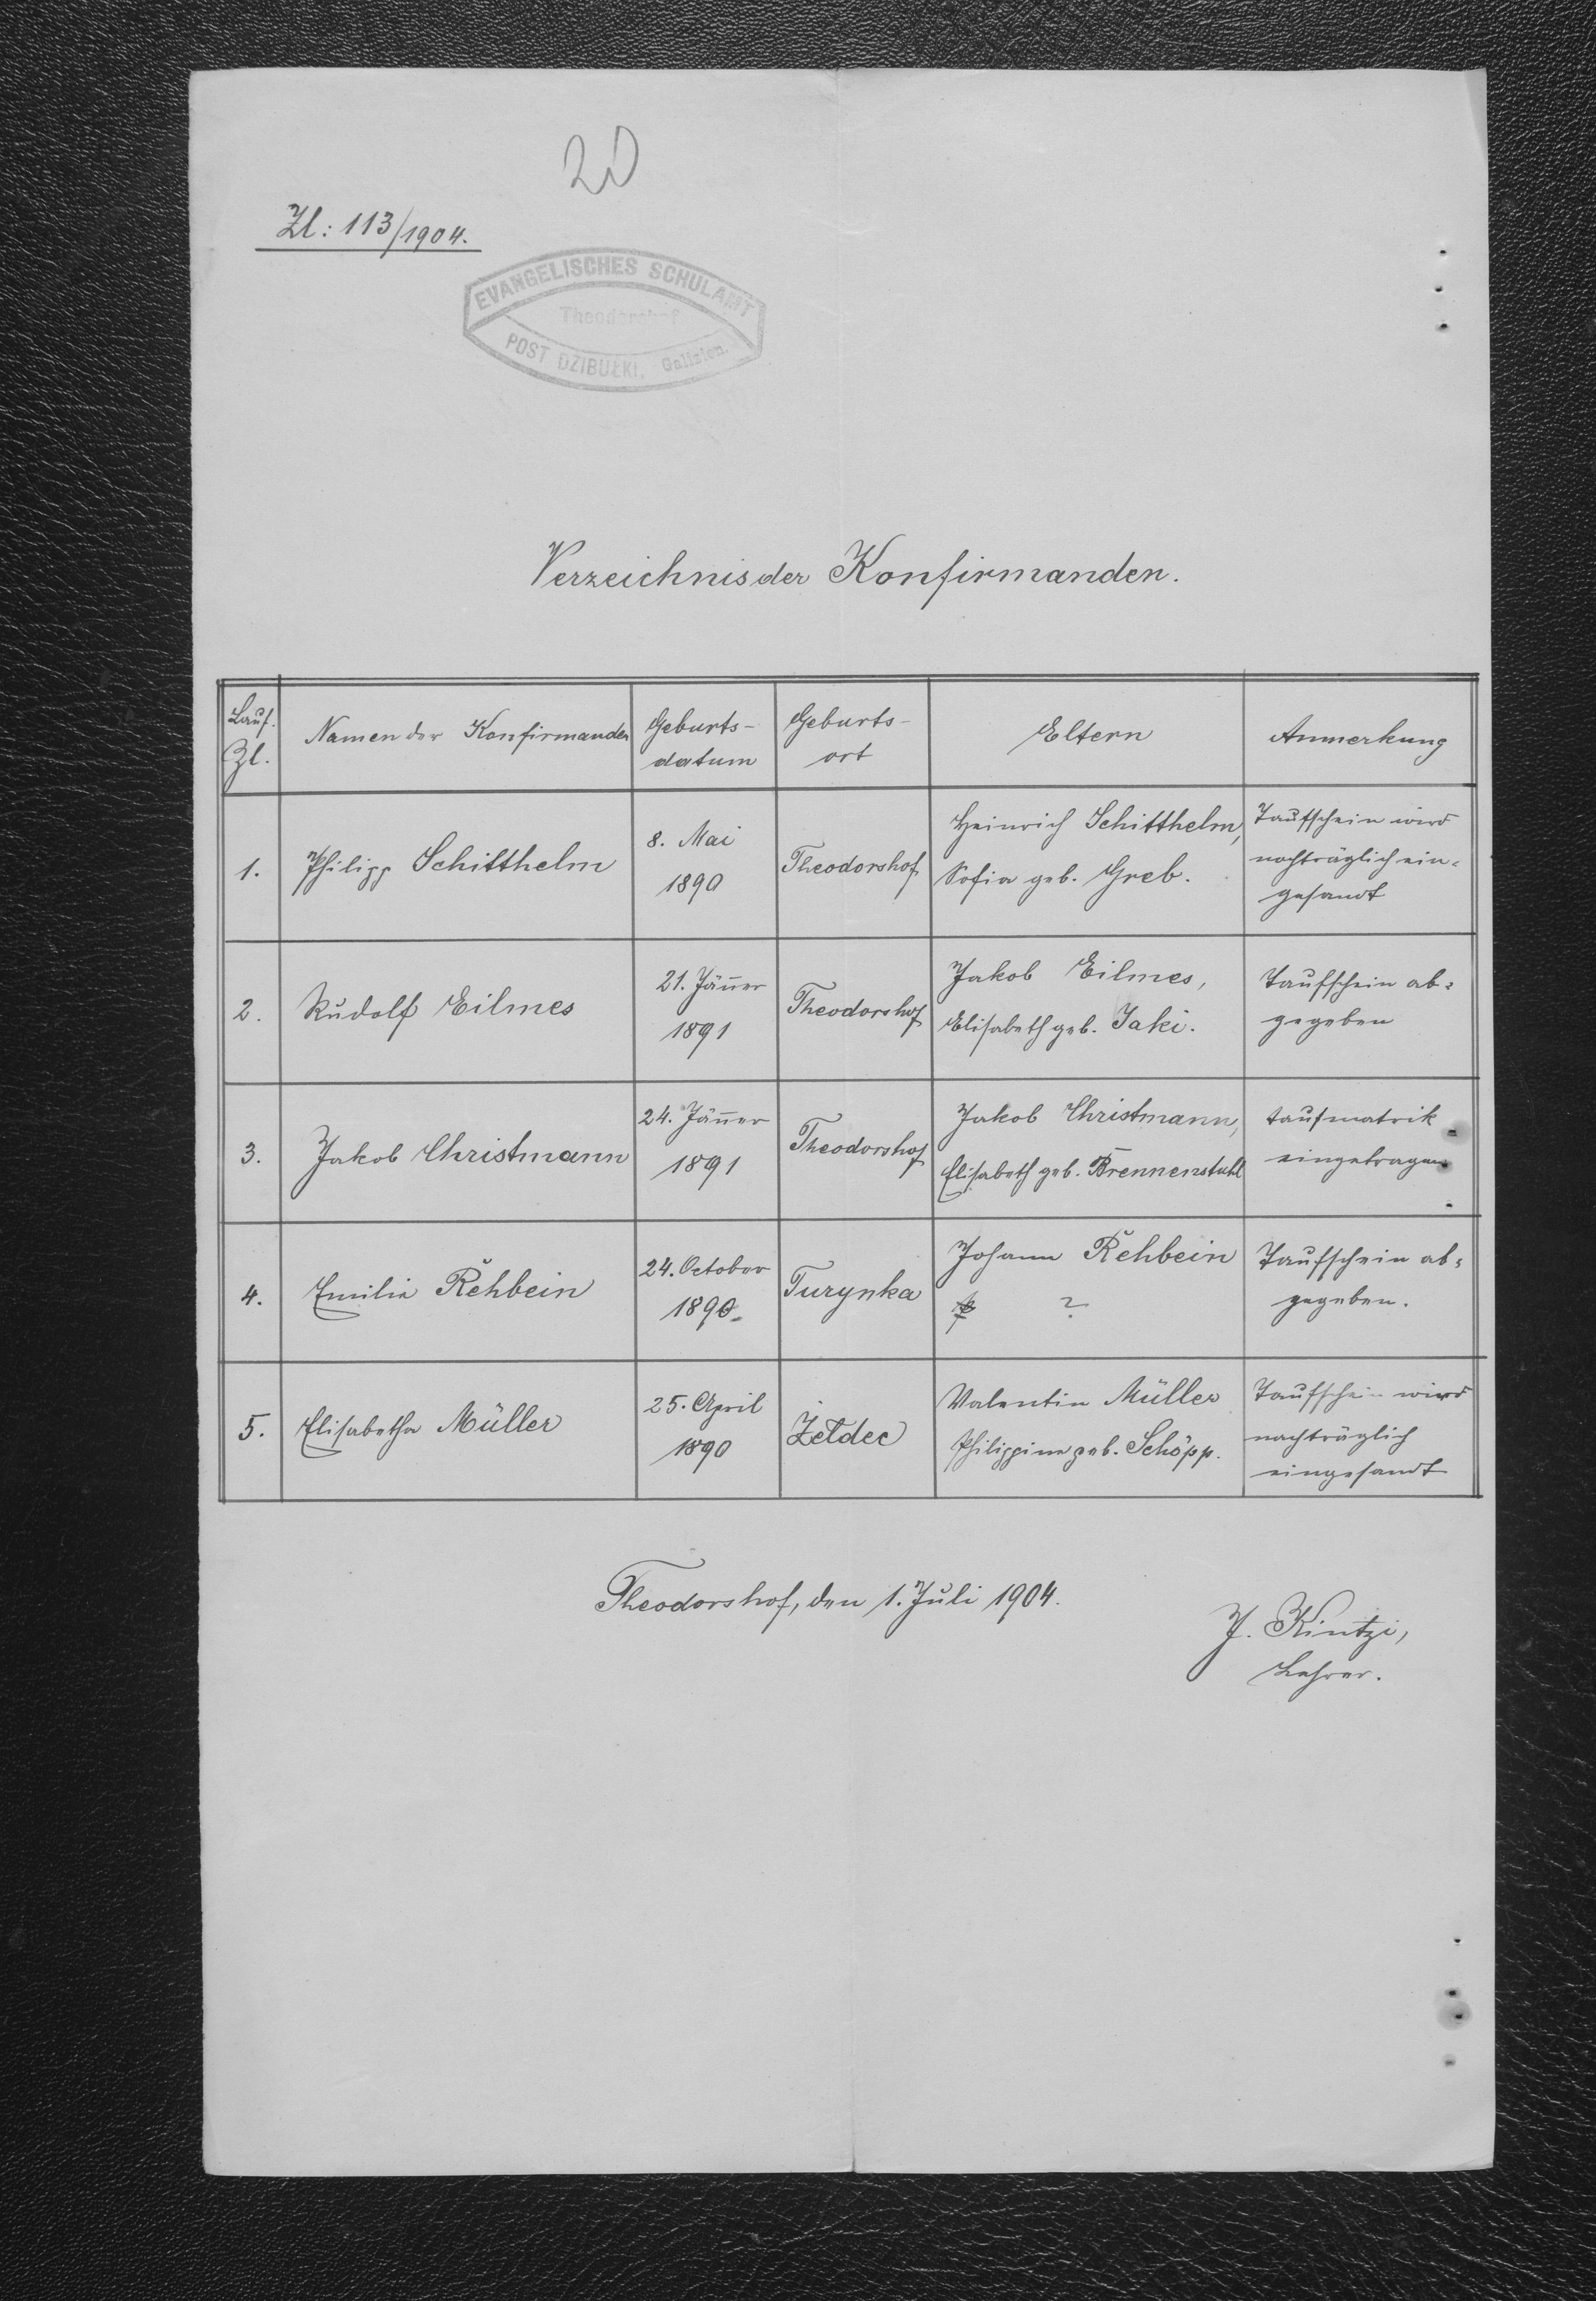 20
Zl: 113/1904.
EVANGELISCHES SCHULAMT
Theodorshof
POST DZIBUŁKI, Galizien.
Verzeichnis der Konfirmanden.
Lauf. Zl.
Namen der Konfirmanden
Geburts-
datum
Geburts-
ort
Eltern
Anmerkung
1.
Philipp Schitthelm
8. Mai
1890
Theodorshof
Heinrich Schitthelm,
Sofia geb. Greb.
Taufschein wird
nachträglich ein-
gesandt
2.
Rudolf Eilmes
21. Jänner
1891
Theodorshof
Jakob Eilmes,
Elisabeth geb. Jaki.
Taufschein ab-
gegeben
3.
Jakob Christmann
24. Jänner
1891
Theodorshof
Jakob Christmann,
Elisabeth geb. Brennenstuhl
taufmatrik
eingetragen
4.
Emilia Rehbein
24. October
1890
Turynka
Johann Rehbein
?
Taufschein ab-
gegeben.
5.
Elisabetha Müller
25. April
1890
Żełdec
Valentin Müller
Philippine geb. Schöpp.
Taufschein wird
nachträglich
eingesandt
Theodorshof, den 1. Juli 1904.
J. Kintzi,
Lehrer.